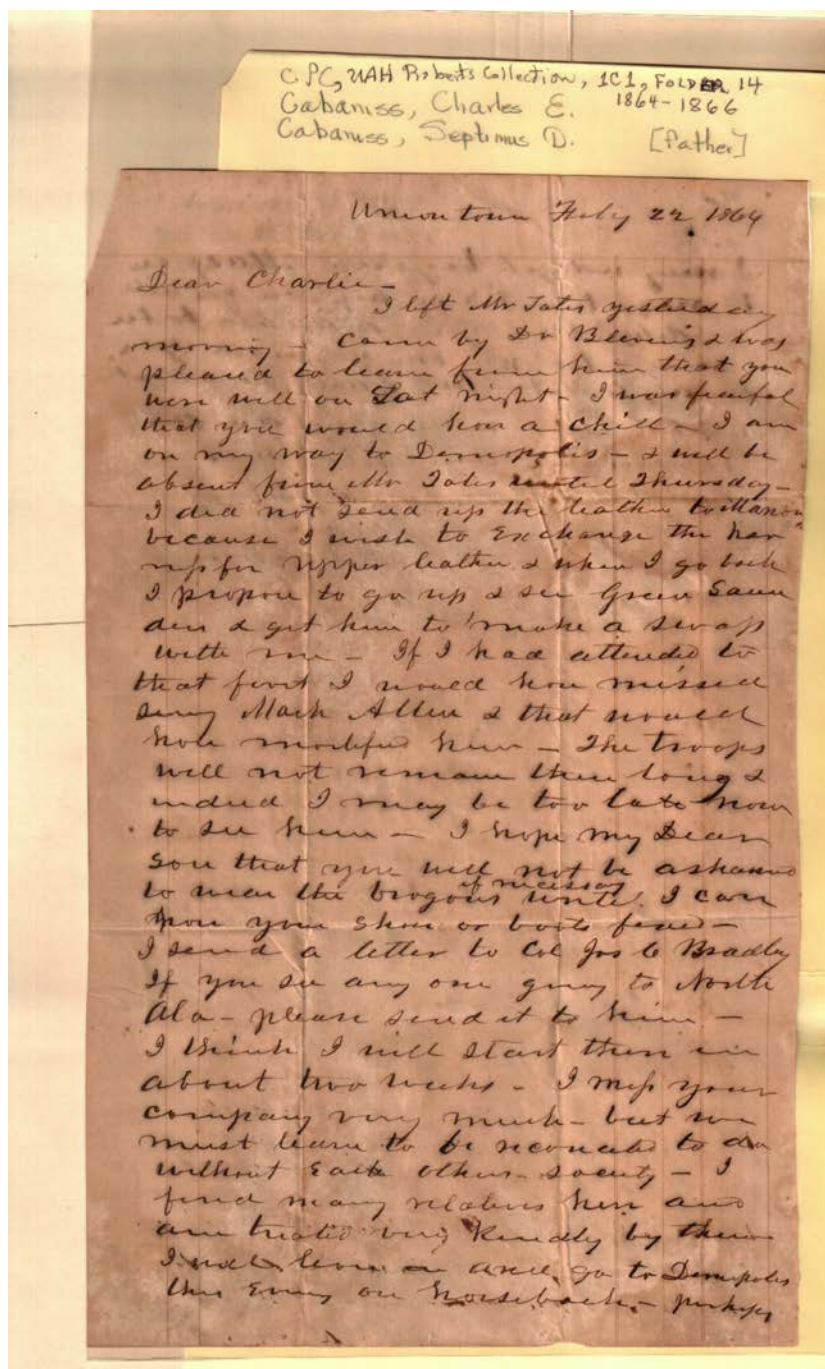 CPC, UAH Roberts Collection, 1C1, FOLDER 14
Cabaniss, Charles E. 1864-1866
Cabaniss, Septimus D. [father]
Uniontown Feby 22 1864
Dear Charlie -
I left Mr Tates yesterday
morning - came by Dr Blevins & was
pleased to learn from him that you
were well on Sat night - I was fearful
that you would have a chill - I am
on my way to Demopolis - & will be
absent from Mr Tates until Thursday -
I did not send up the leather to Marion
because I wish to exchange the har
ness for upper leather & when I go back
I propose to go up & see Green Saun
ders & get him to make a swap
with me - If I had attended to
that first I would have missed
seeing Mack Allen & that would
have mortified him - The troops
will not remain there long &
indeed I may be too late now
to see him - I hope my Dear
Son that you will not be ashamed
to wear the brogans if necessary until I can
have your shoes or boots fixed -
I send a letter to Col Jos C Bradley
If you see any one going to North
Ala - please send it to him -
I think I will start there in
about two weeks - I miss your
company very much - but we
must learn to be reconciled to do
without each others society - I
find many relatives here and
am treated very kindly by them
I will leave and go to Demopolis
this Evening on horseback - perhaps